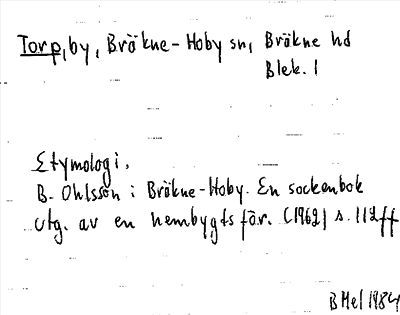 Torp, by, Bräkne-Hoby sn, Bräkne hd
Blek. l
Etymologi.
B. Ohlsson i Bräkne-Hoby. En sockenbok
utg. av en hembygtsför. (1962) s. 112ff
BHel 1984